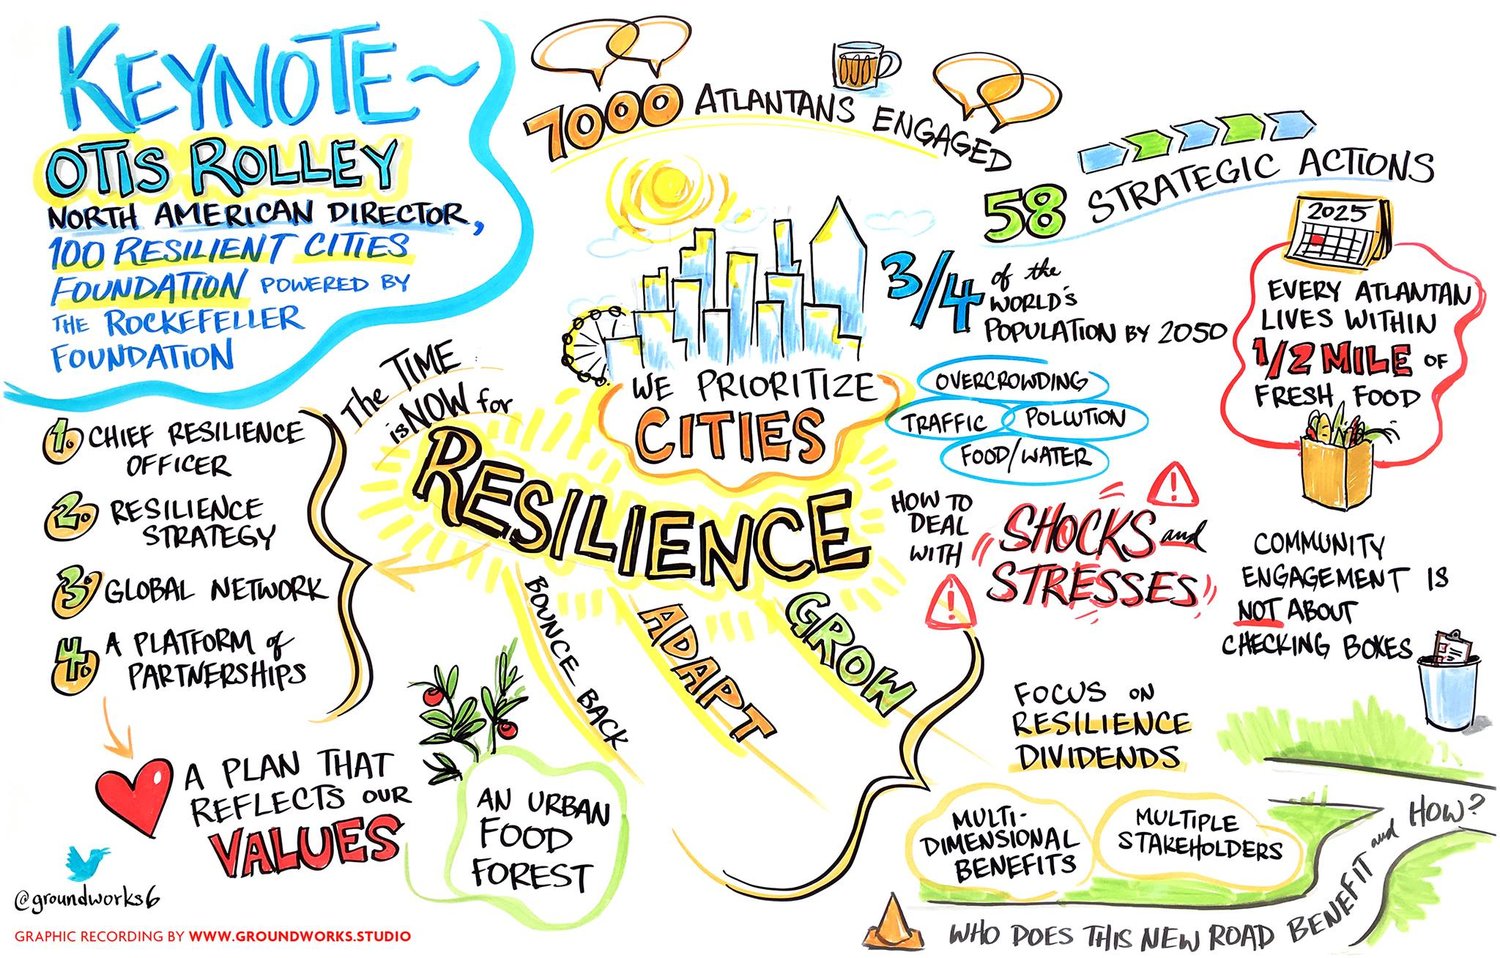 KEYNOTE~
OTIS ROLLEY
NORTH AMERICAN DIRECTOR,
100 RESILIENT CITIES
FOUNDATION POWERED BY
THE ROCKEFELLER
FOUNDATION
7000 ATLANTANS ENGAGED
58 STRATEGIC ACTIONS
3/4 of the
WORLD'S
POPULATION BY 2050
2025
EVERY ATLANTAN
LIVES WITHIN
1/2 MILE OF
FRESH FOOD
WE PRIORITIZE
CITIES
OVERCROWDING
TRAFFIC
POLLUTION
FOOD/WATER
The TIME
is NOW for
RESILIENCE
1. CHIEF RESILIENCE
OFFICER
2. RESILIENCE
STRATEGY
3. GLOBAL NETWORK
4. A PLATFORM of
PARTNERSHIPS
BOUNCE BACK
ADAPT
GROW
HOW TO
DEAL
WITH
SHOCKS and
STRESSES
!
!
COMMUNITY
ENGAGEMENT IS
NOT ABOUT
CHECKING BOXES
A PLAN THAT
REFLECTS OUR
VALUES
AN URBAN
FOOD
FOREST
FOCUS ON
RESILIENCE
DIVIDENDS
MULTI-
DIMENSIONAL
BENEFITS
MULTIPLE
STAKEHOLDERS
WHO DOES THIS NEW ROAD BENEFIT and HOW?
@groundworks6
GRAPHIC RECORDING BY WWW.GROUNDWORKS.STUDIO